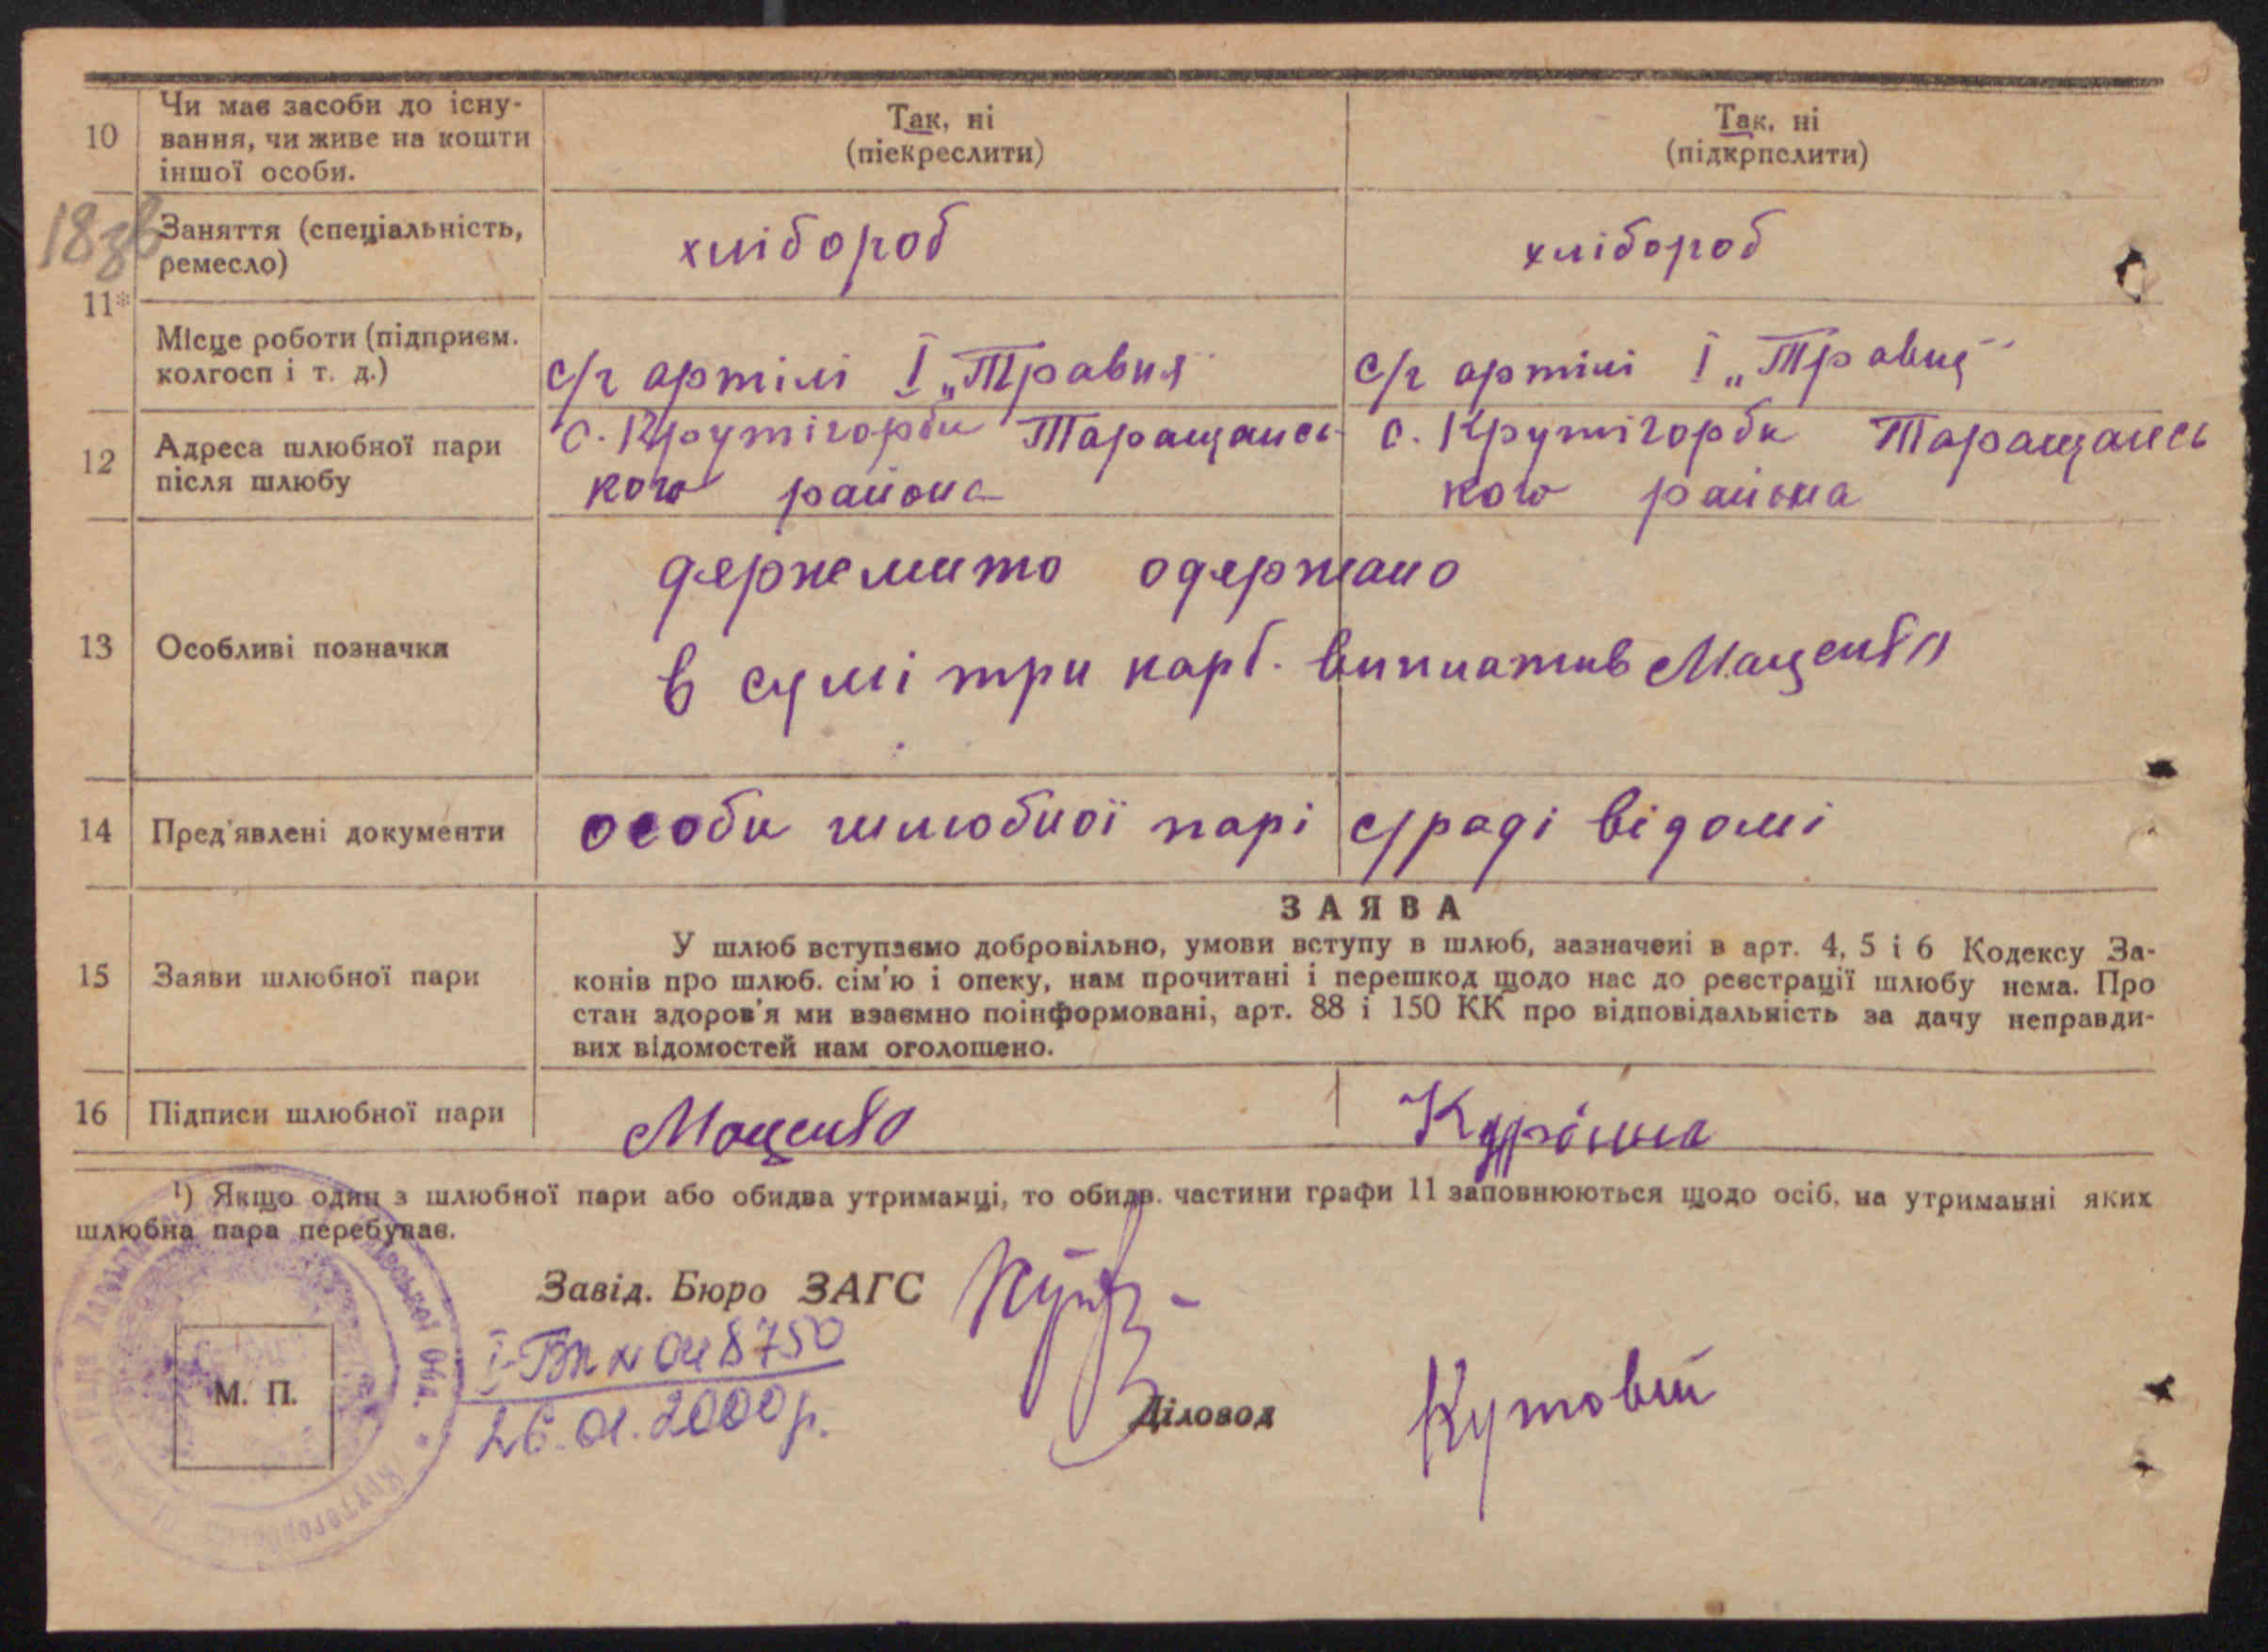 10
Чи має засоби до існу-
вання, чи живе на кошти
іншої особи.
Так, ні
(піекреслити)
Так, ні
(підкрпслити)
18зв
Заняття (спеціальність,
ремесло)
хлібороб
хлібороб
11*
Місце роботи (підприєм.
колгосп і т. д.)
с/г артілі І „Травня"
с/г артілі І „Травня"
12
Адреса шлюбної пари
після шлюбу
с. Крутігорби Таращансь
кого района
с. Крутігорби Таращансь
кого района
13
Особливі позначки
держмито одержано
в сумі три карб. виплатив Маценко
14
Пред'явлені документи
особи шлюбної парі с/раді відомі
15
Заяви шлюбної пари
ЗАЯВА
У шлюб вступаємо добровільно, умови вступу в шлюб, зазначені в арт. 4, 5 і 6 Кодексу За-
конів про шлюб. сім'ю і опеку, нам прочитані і перешкод щодо нас до реєстрації шлюбу нема. Про
стан здоров'я ми взаємно поінформовані, арт. 88 і 150 КК про відповідальність за дачу неправди-
вих відомостей нам оголошено.
16
Підписи шлюбної пари
Маценко
¹) Якщо один з шлюбної пари або обидва утриманці, то обидв. частини графи 11 заповнюються щодо осіб, на утриманні яких
шлюбна пара перебуває.
Завід. Бюро ЗАГС
І-БК № 048750
26.01.2000р.
М. П.
Діловод
Кутовий